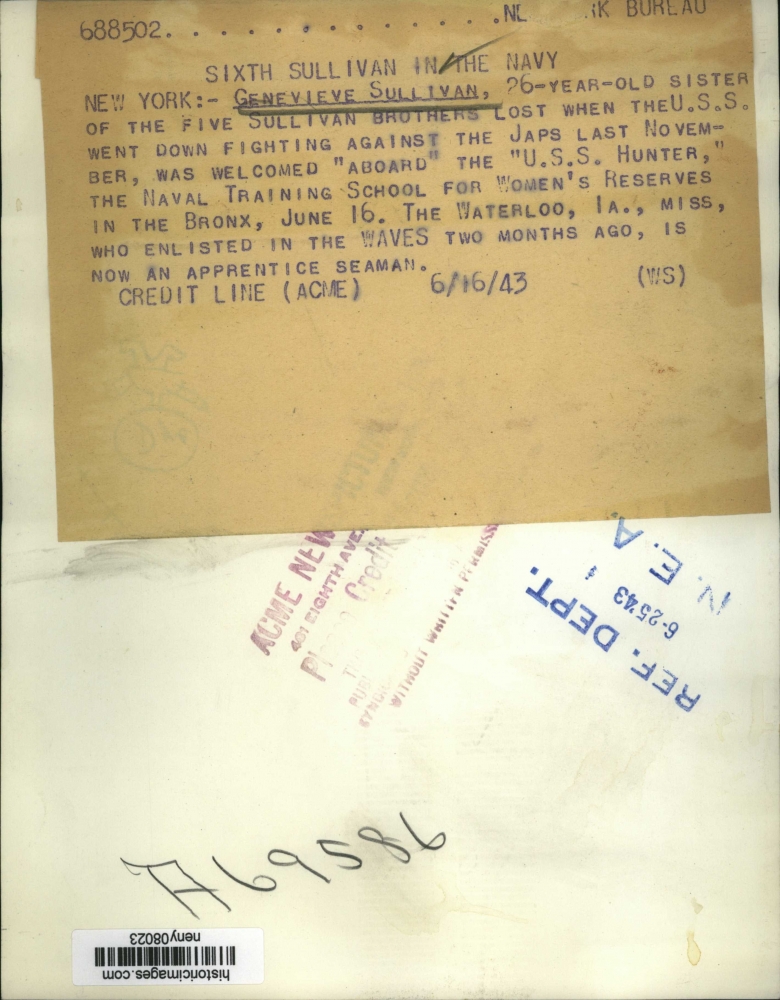 688502. . . . . . . . . . . . . . .NE RK BUREAU
SIXTH SULLIVAN IN THE NAVY
NEW YORK:- GENEVIEVE SULLIVAN, 26-YEAR-OLD SISTER
OF THE FIVE SULLIVAN BROTHERS LOST WHEN THE U.S.S.
WENT DOWN FIGHTING AGAINST THE JAPS LAST NOVEM-
BER, WAS WELCOMED "ABOARD" THE "U.S.S. HUNTER,"
THE NAVAL TRAINING SCHOOL FOR WOMEN'S RESERVES
IN THE BRONX, JUNE 16. THE WATERLOO, IA., MISS,
WHO ENLISTED IN THE WAVES TWO MONTHS AGO, IS
NOW AN APPRENTICE SEAMAN.
CREDIT LINE (ACME) 6/16/43 (WS)
ACME NEW
401 EIGHTH AVE.
Credit
WITHOUT WRITTEN PERMISS
N.E.A.
6-25'43
REF. DEPT.
A69586
neny08023
historicimages.com